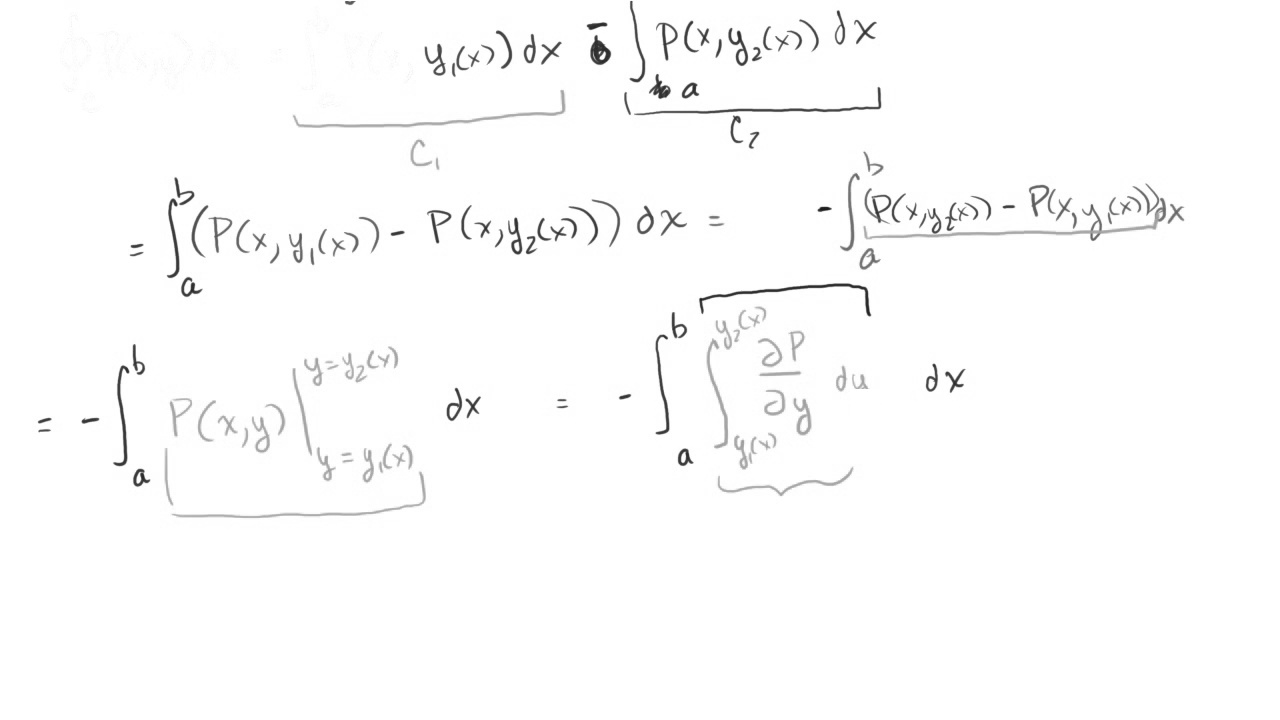 ∮ P(x,y) dx = ∫_a^b P(x, y₁(x)) dx - ∫_a P(x, y₂(x)) dx
C₁ C₂
= ∫_a^b (P(x, y₁(x)) - P(x, y₂(x))) dx = - ∫_a^b (P(x, y₂(x)) - P(x, y₁(x))) dx
= - ∫_a^b P(x,y) |_{y = y₁(x)}^{y = y₂(x)} dx = - ∫_a^b ∫_{y₁(x)}^{y₂(x)} ∂P/∂y du dx